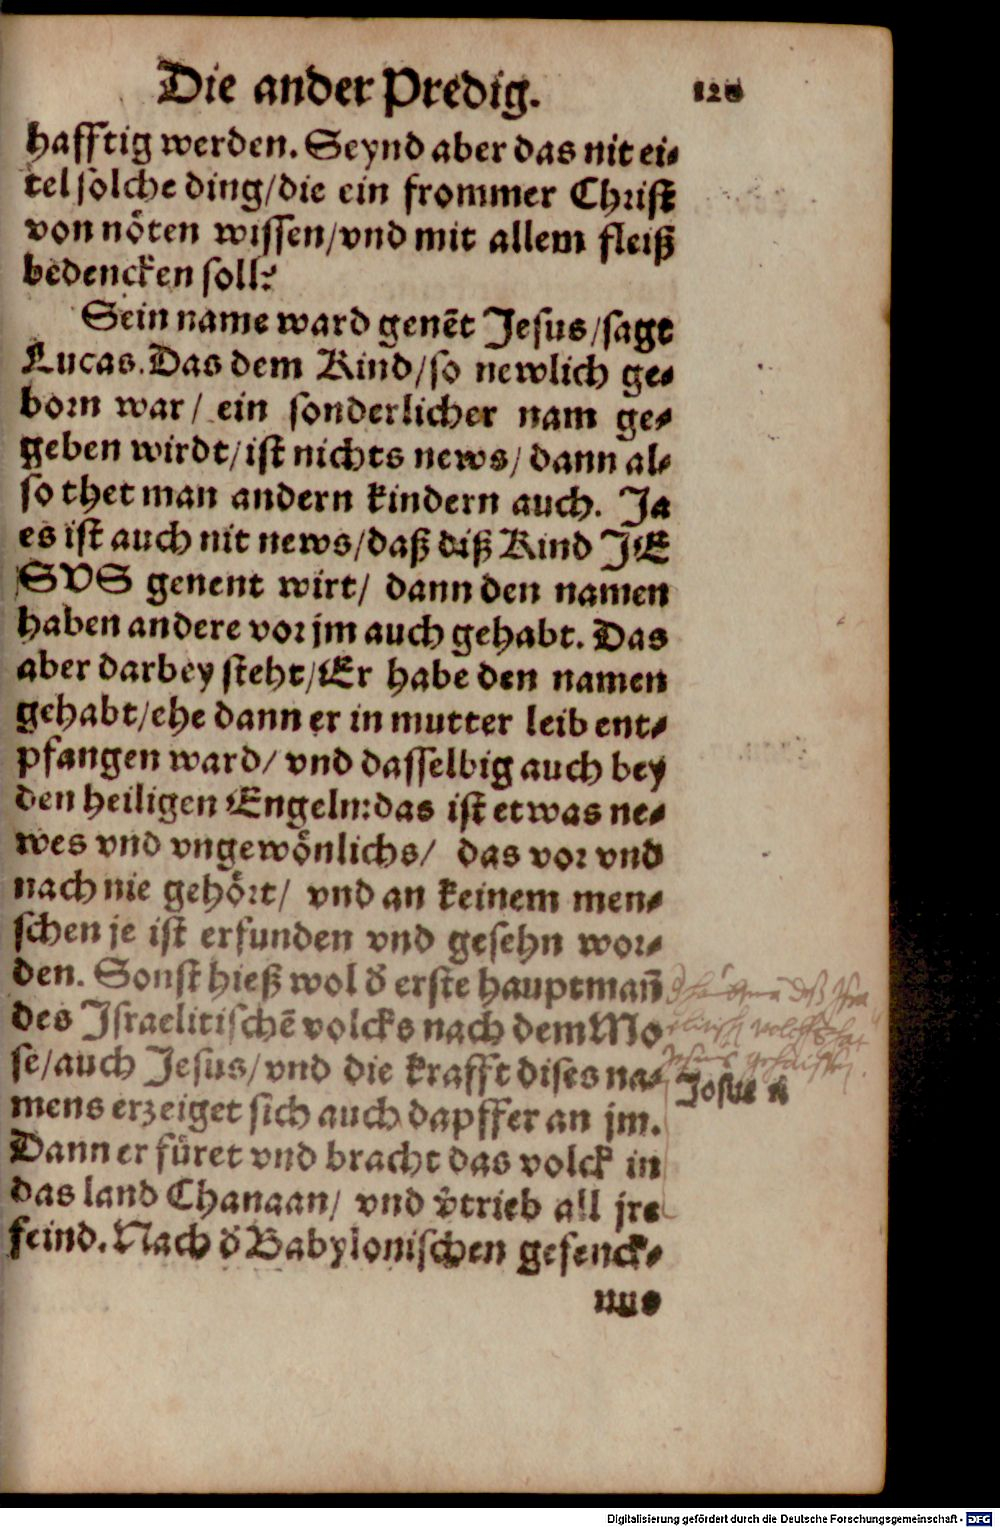 Die ander Predig.
hafftig werden. Seynd aber das nit ei-
tel solche ding/die ein frommer Christ
von nöten wissen/vnd mit allem fleiß
bedencken soll?
Sein name ward genēt Jesus/sagt
Lucas. Das dem Kind/so newlich ge-
born war/ ein sonderlicher nam ge-
geben wirdt/ist nichts news/ dann al-
so thet man andern kindern auch. Ja
es ist auch nit news/daß diß Kind JE
SVS genent wirt/ dann den namen
haben andere vor jm auch gehabt. Das
aber darbey steht/Er habe den namen
gehabt/ehe dann er in mutter leib ent-
pfangen ward/ vnd dasselbig auch bey
den heiligen Engeln:das ist etwas ne-
wes vnd vngewönlichs/ das vor vnd
nach nie gehört/ vnd an keinem men-
schen je ist erfunden vnd gesehn wor-
den. Sonst hieß wol d̄ erste hauptmañ
des Israelitischē volcks nach dem Mo
se/auch Jesus/vnd die krafft dises na-
Josue
mens erzeiget sich auch dapffer an jm.
Dann er füret vnd bracht das volck in
das land Chanaan/ vnd v̄trieb all jre
feind. Nach d̄ Babylonischen gefenck-
nus
Digitalisierung gefördert durch die Deutsche Forschungsgemeinschaft - DFG